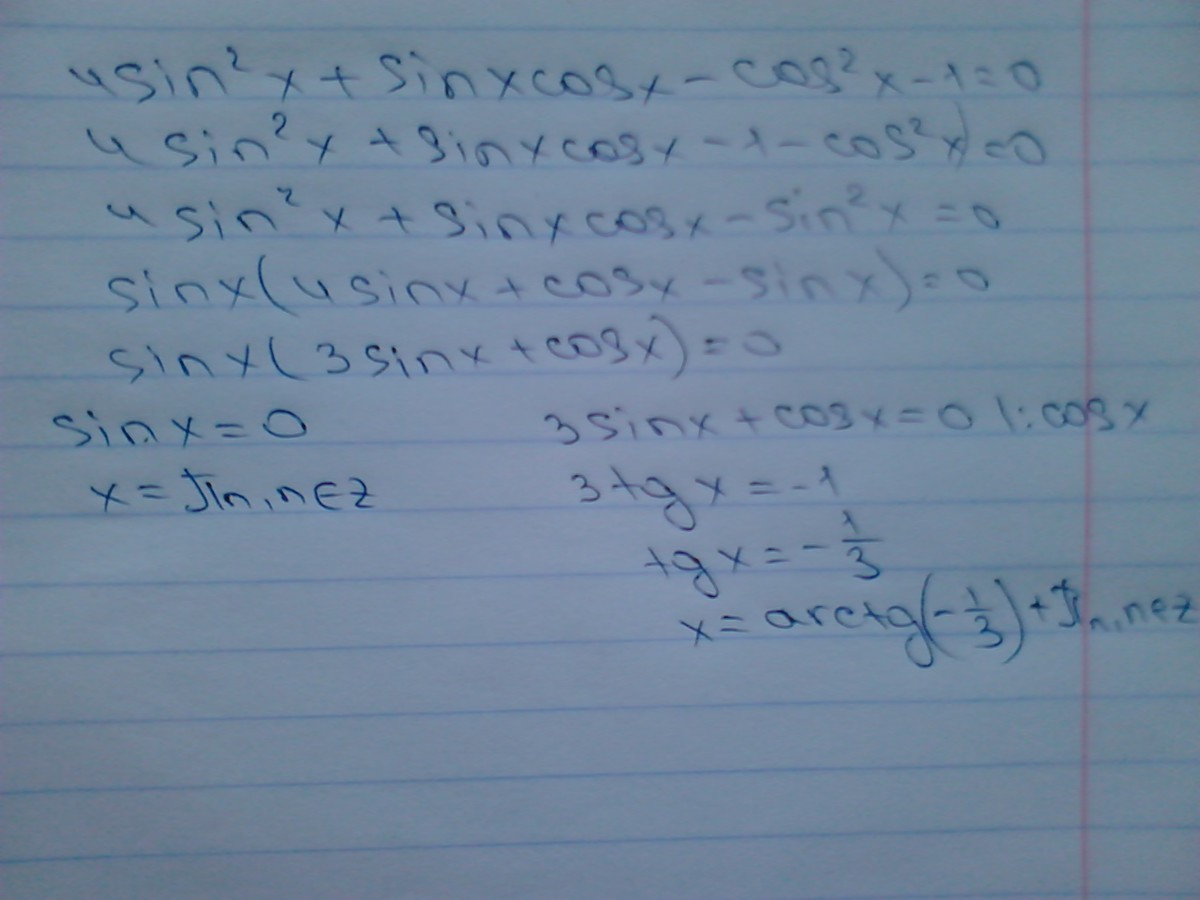 4sin²x + sinxcosx - cos²x - 1 = 0
4sin²x + sinxcosx - 1 - cos²x) = 0
4sin²x + sinxcosx - sin²x = 0
sinx(4sinx + cosx - sinx) = 0
sinx(3sinx + cosx) = 0
sinx = 0 3sinx + cosx = 0 |: cosx
x = πn, n∈z 3tgx = -1
tgx = -1/3
x = arctg(-1/3) + πn, n∈z